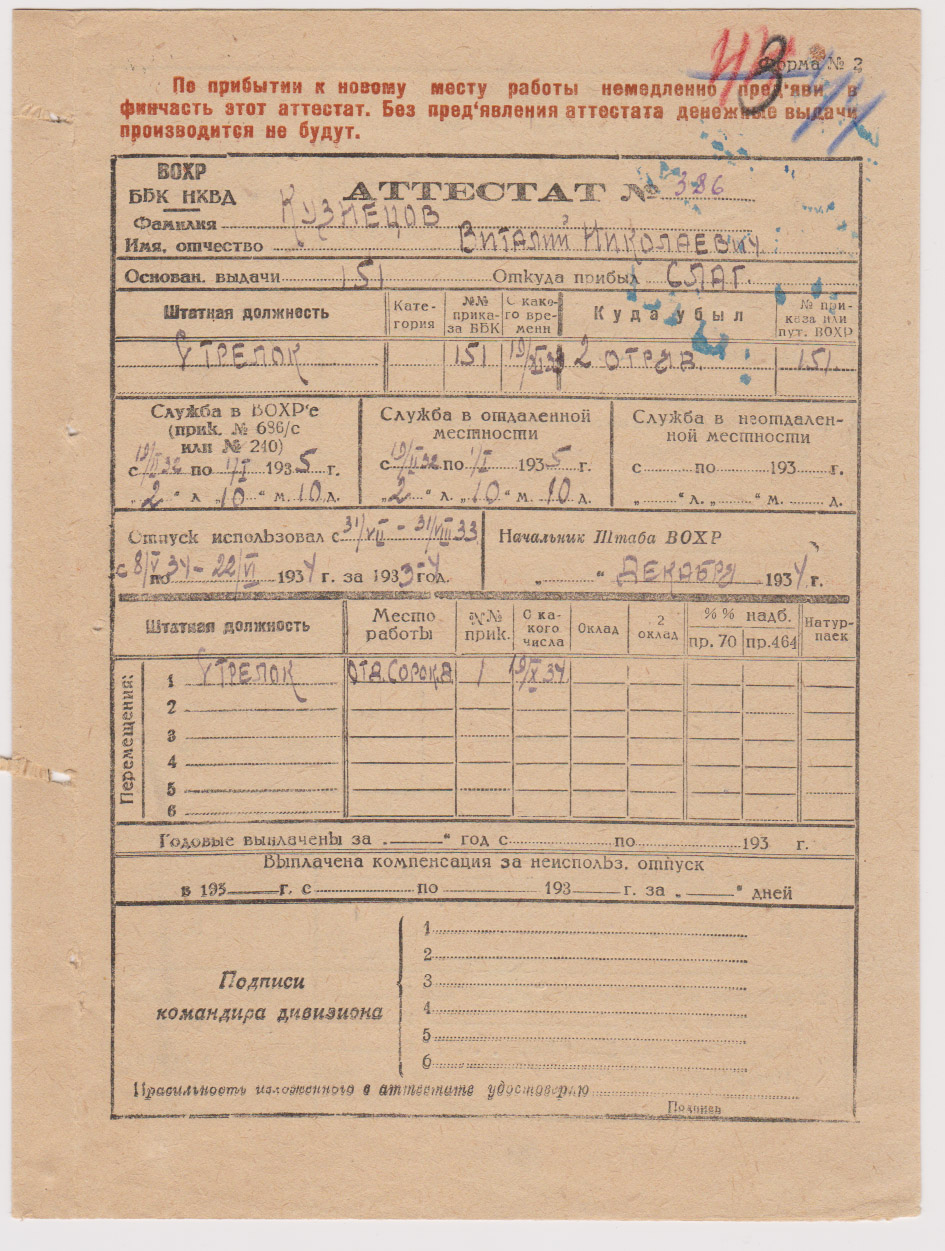 Форма № 2
3
По прибытии к новому месту работы немедленно пред‘яви в
финчасть этот аттестат. Без пред‘явления аттестата денежные выдачи
производится не будут.
ВОХР
ББК НКВД
АТТЕСТАТ № 386
Фамилия КУЗНЕЦОВ
Имя, отчество ВИТАЛИЙ НИКОЛАЕВИЧ
Основан. выдачи 151 Откуда прибыл СЛАГ.
Штатная должность Кате-гория №№ прика-за ББК С како-го вре-мени Куда убыл № при-каза или пут. ВОХР
СТРЕЛОК 151 2 ОТРЯВ. 151
Служба в ВОХР‘е Служба в отдаленной Служба в неотдален-
(прик. № 686/с местности ной местности
или № 240)
с 19/II 32 по 1/I 1935 г. с 19/II 32 по 1/I 1935 г. с по 193 г.
„2“ л. 10“ м. 10 д. „2“ л. „10“ м. 10 д. „ “ л. „ “ м. д.
Отпуск использовал с 31/VII – 31/VIII 33 Начальник Штаба ВОХР
с 8/V по 34 – 22/VI 1934 г. за 1933-4 год. „ “ ДЕКАБРЯ 1934 г.
Штатная должность Место работы №№ прик. С ка-кого числа Оклад 2 оклад %% надб. пр. 70 пр. 464 Натур-паек
Перемещения:
1 СТРЕЛОК ОТД. СОРОКА 1 19/X 34
2
3
4
5
6
Годовые выплачены за „ “ год с по 193 г.
Выплачена компенсация за неиспольз. отпуск
в 193 г. с по 193 г. за „ “ дней
Подписи
командира дивизиона
1
2
3
4
5
6
Правильность изложенного в аттестате удостоверяю
Подпись